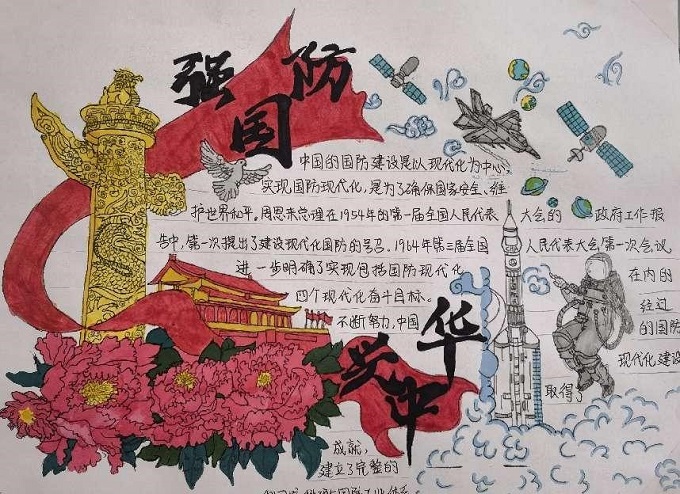 强国防
中国的国防建设是以现代化为中心,
实现国防现代化,是为了确保国家安全、维
护世界和平。周恩来总理在1954年的第一届全国人民代表大会的政府工作报
告中,第一次提出了建设现代化国防的号召。1964年第三届全国人民代表大会第一次会议
进一步明确了实现包括国防现代化在内的
四个现代化奋斗目标。经过
不断努力,中国的国防
现代化建设
取得了
兴中华
成就,
建立了完整的